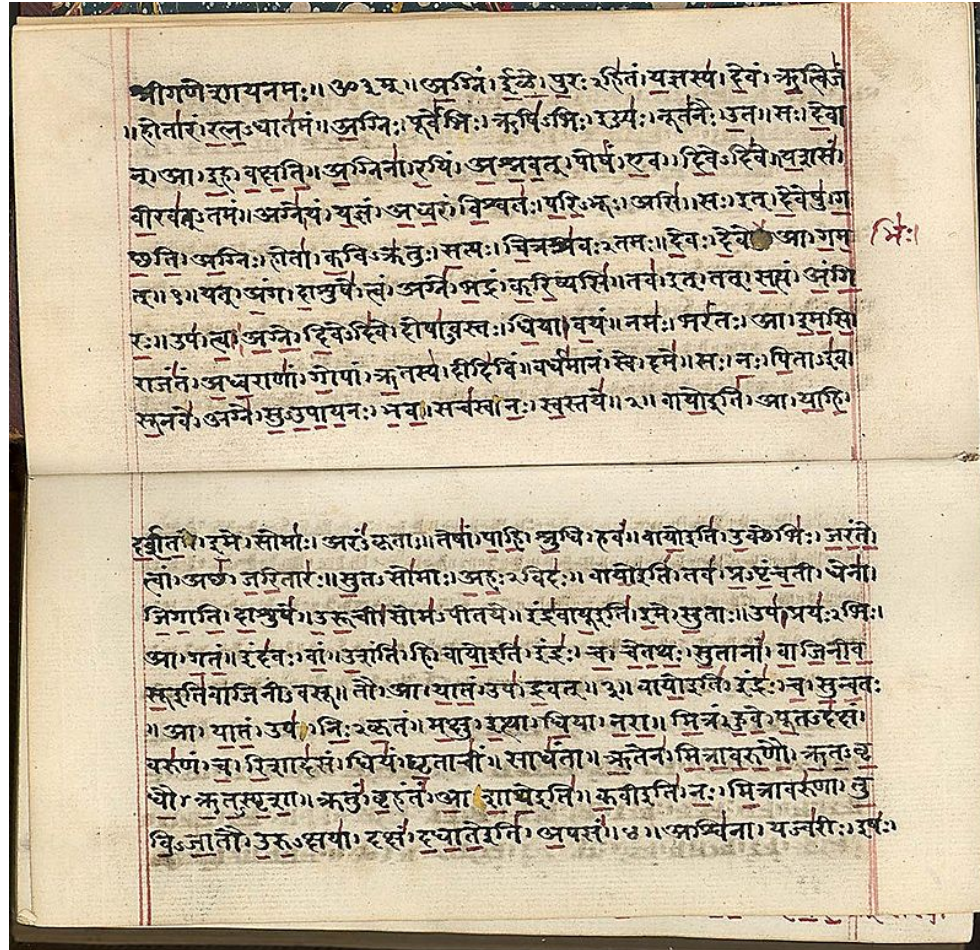 श्रीगणेशायनमः॥ॐ३म्॥अ॒ग्निं।ई॒ळे॒।पु॒रःऽहि॑तं।य॒ज्ञस्य॑।दे॒वं।ऋ॒त्विजं॑
॥होता॑रं।र॒त्न॒ऽधात॑मं॥अ॒ग्निः।पूर्वे॑भिः।ऋषि॑ऽभिः।ईड्यः॑।नूत॑नैः।उ॒त॥सः।दे॒वा
न्।आ।इ॒ह।व॒क्ष॒ति॒॥अ॒ग्निना॑।र॒यिं।अ॒श्न॒व॒त्।पोषं॑।ए॒व।दि॒वेऽदि॑वे॥य॒शसं॑
वी॒रव॑त्ऽतमं॥अग्ने॑।यं।य॒ज्ञं।अ॒ध्व॒रं।वि॒श्वतः॑।प॒रि॒ऽभूः।असि॑॥सः।इत्।दे॒वेषु॑।ग॒
च्छ॒ति॒।अ॒ग्निः।होता॑।क॒विऽक्र॑तुः।स॒त्यः।चि॒त्रश्र॑वःऽतमः॥दे॒वः।दे॒वे आ।ग॒म॒ भिः॑।
त्॥१॥यत्।अं॒ग।दा॒शुषे॑।त्वं।अग्ने॑।भ॒द्रं।क॒रि॒ष्यसि॑॥तव॑।इत्।तत्।स॒त्यं।अं॒गि॒
रः॒॥उप॑।त्वा॒।अ॒ग्ने॒।दि॒वेऽदि॑वे।दोषा॑ऽवस्तः।धि॒या।व॒यं॥नमः॑।भरं॑तः।आ।इ॒म॒सि॒
राजं॑तं।अ॒ध्व॒राणां॑।गो॒पां।ऋ॒तस्य॑।दीदि॑विं॥वर्ध॑मानं।स्वे।दमे॑॥सः।नः॒।पि॒ताऽइ॑व।
सू॒नवे॑।अग्ने॑।सु॒ऽउ॒पा॒य॒नः।भ॒व॒॥सच॑स्व।नः॒।स्व॒स्तये॑॥२॥वायो॒इति॑।आ।या॒हि॒
द॒र्श॒त॒।इ॒मे।सोमाः॑।अरं॑ऽकृताः॥तेषां॑।पा॒हि॒।श्रु॒धि।हवं॑॥वायो॒इति॑।उ॒क्थेभिः॑।ज॒रं॒ते॒
त्वां।अच्छ॑।ज॒रि॒तारः॑॥सु॒तऽसो॑माः।अ॒हः॒ऽविदः॑॥वायो॒इति॑।तव॑।प्र॒ऽपृं॒च॒ती।धेना॑।
जि॒गा॒ति॒।दा॒शुषे॑॥उ॒रू॒ची।सोम॑ऽपीतये॥इंद्र॑वायू॒इति॑।इ॒मे।सु॒ताः॥उप॑।प्रयः॑ऽभिः।
आ।ग॒तं॒॥इंद॑वः।वां॒।उ॒शंति॑।हि॥वायो॒इति॑।इंद्रः॑।च॒।चे॒त॒थः॒।सु॒तानां॑।वा॒जि॒नी॒व॒
सू॒इति॑वाजिनीऽवसू॥तौ।आ।या॒तं॒।उप॑।द्र॒वत्॥३॥वायो॒इति॑।इंद्रः॑।च॒।सु॒न्व॒तः
॥आ।या॒तं॒।उप॑।निः॒ऽकृ॒तं॥म॒क्षु।इ॒त्था।धि॒या।न॒रा॒॥मि॒त्रं।हु॒वे॒।पू॒तऽद॑क्षं।
वरु॑णं।च॒।रि॒शाद॑सं॥धियं॑।घृ॒ताचीं॑।साधं॑ता॥ऋ॒तेन॑।मि॒त्रा॒व॒रु॒णौ॒।ऋ॒त॒ऽवृ॒
धौ॒।ऋ॒त॒ऽस्पृ॒शा॒॥क्रतुं॑।बृ॒हंतं॑।आ॒शा॒थे॒इति॑॥क॒वीइति॑।नः॒।मि॒त्रावरु॑णा।तु॒
वि॒ऽजा॒तौ।उ॒रु॒ऽक्षया॑।दक्षं॑।द॒धा॒ते॒इति॑।अ॒पसं॑॥४॥अश्वि॑ना।यज्व॑रीः।इषः॑।